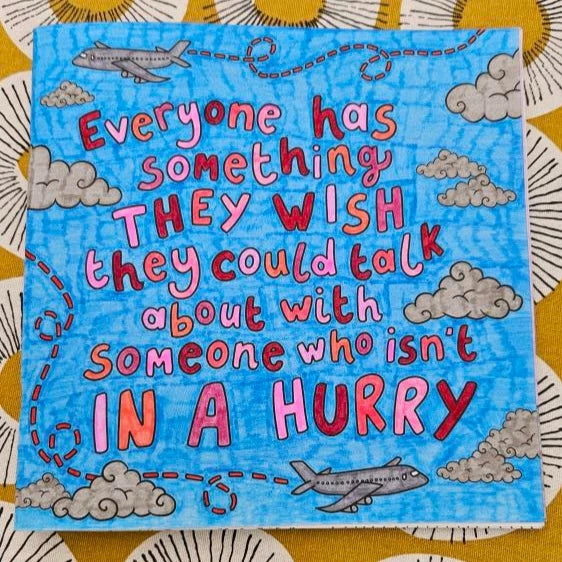 Everyone has
something
THEY WISH
they could talk
about with
someone who isn't
IN A HURRY